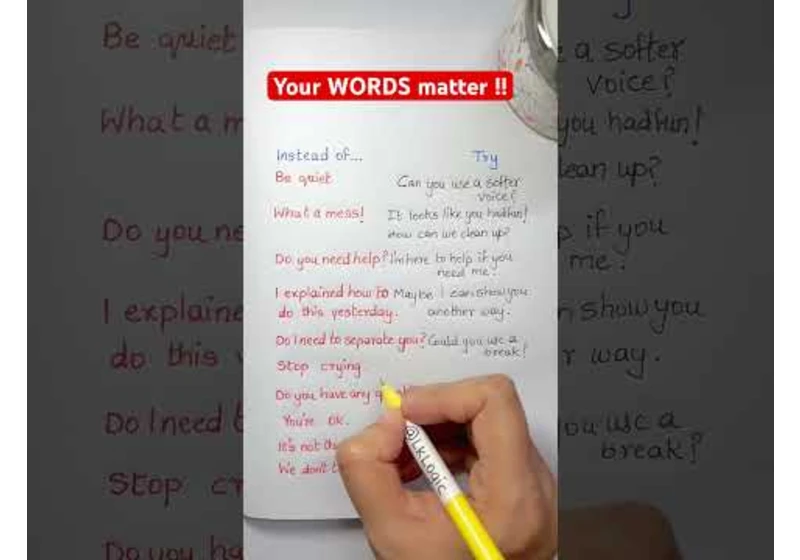 Your WORDS matter !!
Instead of... Try
Be quiet Can you use a softer
voice?
What a mess! It looks like you had fun!
How can we clean up?
Do you need help? I'm here to help if you
need me.
I explained how to Maybe I can show you
do this yesterday. another way.
Do I need to separate you? Could you use a
break?
Stop crying
Do you have any
You're ok.
It's not
We don't
@LKLogic
Be quiet
a softer
voice?
What a m
you had fun!
lean up?
Do you ne
if you
me.
I explaine
n show you
do this
r way.
Do I need
ou use a
break?
Stop cr
Do you ha